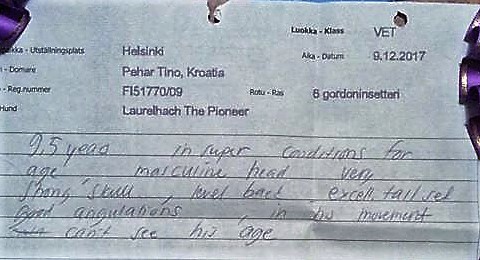 Luokka - Klass VET
ikka - Utställningsplats Helsinki Aika - Datum 9.12.2017
- Domare Pehar Tino, Kroatia
- Reg.nummer FI51770/09 Rotu - Ras 6 gordoninsetteri
Hund Laurelhach The Pioneer
9,5 years in super conditions for
age, masculine head very
strong skull, level back excell. tail set
good angulations, in his movement
can't see his age